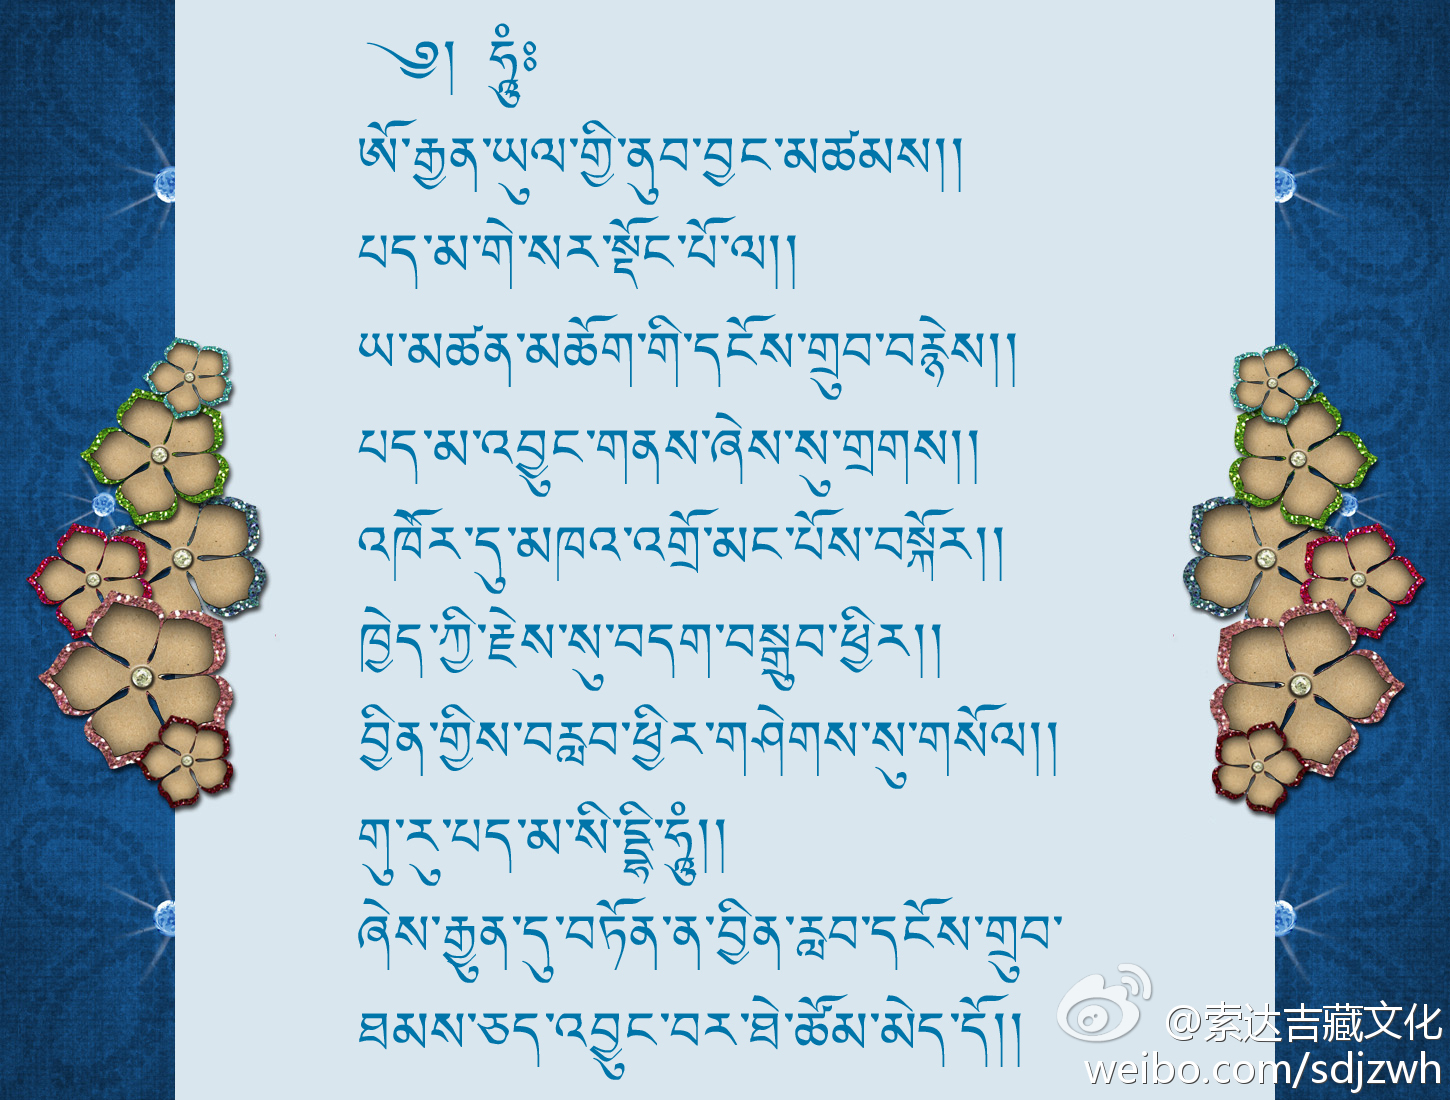 ༄། ཧཱུྃ༔
ཨོ་རྒྱན་ཡུལ་གྱི་ནུབ་བྱང་མཚམས།།
པད་མ་གེ་སར་སྡོང་པོ་ལ།།
ཡ་མཚན་མཆོག་གི་དངོས་གྲུབ་བརྙེས།།
པད་མ་འབྱུང་གནས་ཞེས་སུ་གྲགས།།
འཁོར་དུ་མཁའ་འགྲོ་མང་པོས་བསྐོར།།
ཁྱེད་ཀྱི་རྗེས་སུ་བདག་བསྒྲུབ་ཕྱིར།།
བྱིན་གྱིས་བརླབ་ཕྱིར་གཤེགས་སུ་གསོལ།།
གུ་རུ་པད་མ་སིདྡྷི་ཧཱུྃ།།
ཞེས་རྒྱུན་དུ་བཏོན་ན་བྱིན་རླབ་དངོས་གྲུབ་
ཐམས་ཅད་འབྱུང་བར་ཐེ་ཚོམ་མེད་དོ།།
@索达吉藏文化
weibo.com/sdjzwh